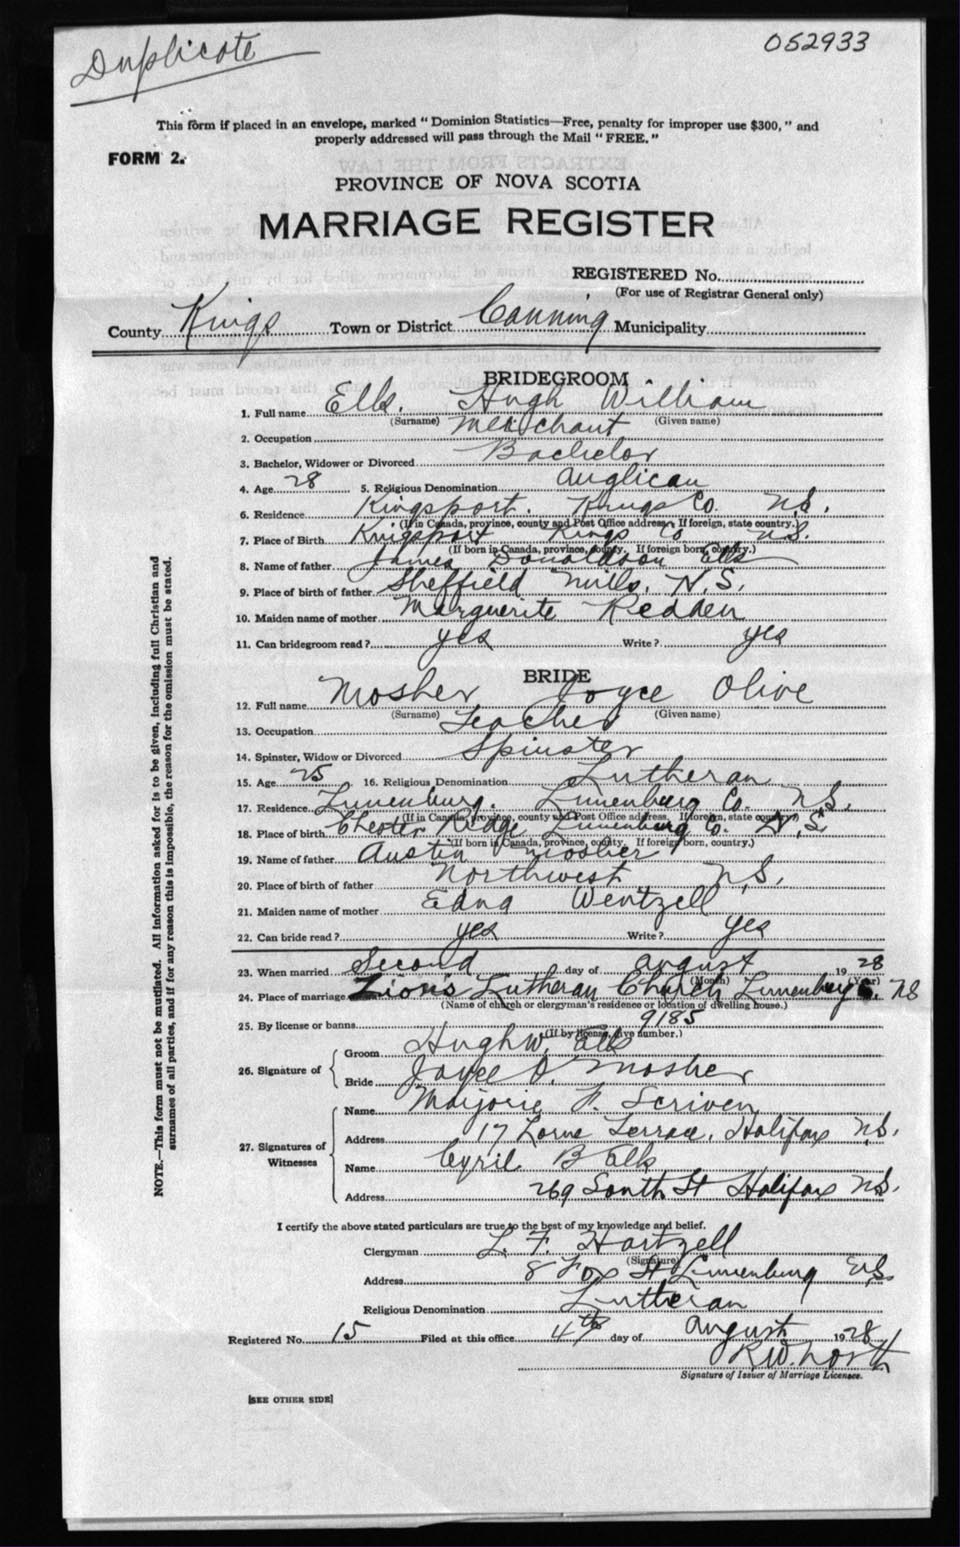 Duplicate
052933
This form if placed in an envelope, marked "Dominion Statistics—Free, penalty for improper use $300," and
properly addressed will pass through the Mail "FREE."
FORM 2.
PROVINCE OF NOVA SCOTIA
MARRIAGE REGISTER
REGISTERED No.
(For use of Registrar General only)
County Kings Town or District Canning Municipality
BRIDEGROOM
1. Full name Ells. Hugh William
(Surname) (Given name)
2. Occupation Merchant
3. Bachelor, Widower or Divorced Bachelor
4. Age 28 5. Religious Denomination Anglican
6. Residence Kingsport. Kings Co. N.S.
(If in Canada, province, county and Post Office address. If foreign, state country.)
7. Place of Birth Kingsport Kings Co N.S.
(If born in Canada, province, county. If foreign born, country.)
8. Name of father James Donaldson Ells
9. Place of birth of father Sheffield Mills, N.S.
10. Maiden name of mother Marguerite Redden
11. Can bridegroom read? yes Write? yes
BRIDE
12. Full name Mosher Joyce Olive
(Surname) (Given name)
13. Occupation Teacher
14. Spinster, Widow or Divorced Spinster
15. Age 25 16. Religious Denomination Lutheran
17. Residence Lunenburg. Lunenburg Co. N.S.
(If in Canada, province, county and Post Office address. If foreign, state country.)
18. Place of birth Chester Ridge Lunenburg Co. N.S.
(If born in Canada, province, county. If foreign born, country.)
19. Name of father Austin Mosher
20. Place of birth of father Northwest N.S.
21. Maiden name of mother Edna Wentzell
22. Can bride read? yes Write? yes
23. When married Second day of August 1928
(Month) (Year)
24. Place of marriage Zions Lutheran Church Lunenburg NS
(Name of church or clergyman's residence or location of dwelling house.)
25. By license or banns 9185
(If by license, give number.)
26. Signature of
Groom Hugh W. Ells
Bride Joyce O. Mosher
27. Signatures of Witnesses
Name Marjorie F. Scriven
Address 17 Lorne Terrace, Halifax N.S.
Name Cyril B Ells
Address 269 South St Halifax N.S.
I certify the above stated particulars are true to the best of my knowledge and belief.
Clergyman L. F. Hartzell
(Signature)
Address 8 Fox St Lunenburg N.S.
Religious Denomination Lutheran
Registered No. 15 Filed at this office 4th day of August 1928
R.W. North
Signature of Issuer of Marriage Licenses.
[SEE OTHER SIDE]
NOTE.—This form must not be mutilated. All information asked for is to be given, including full Christian and
surnames of all parties, and if for any reason this is impossible, the reason for the omission must be stated.